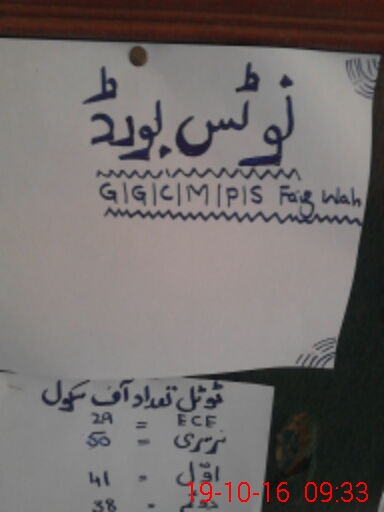 نوٹس بورڈ
G|G|C|M|P|S Faiz Wah
ٹوٹل تعداد آف سکول
ECE = 29
نرسری = 50
اوّل = 41
دوئم - 38
19-10-16 09:33